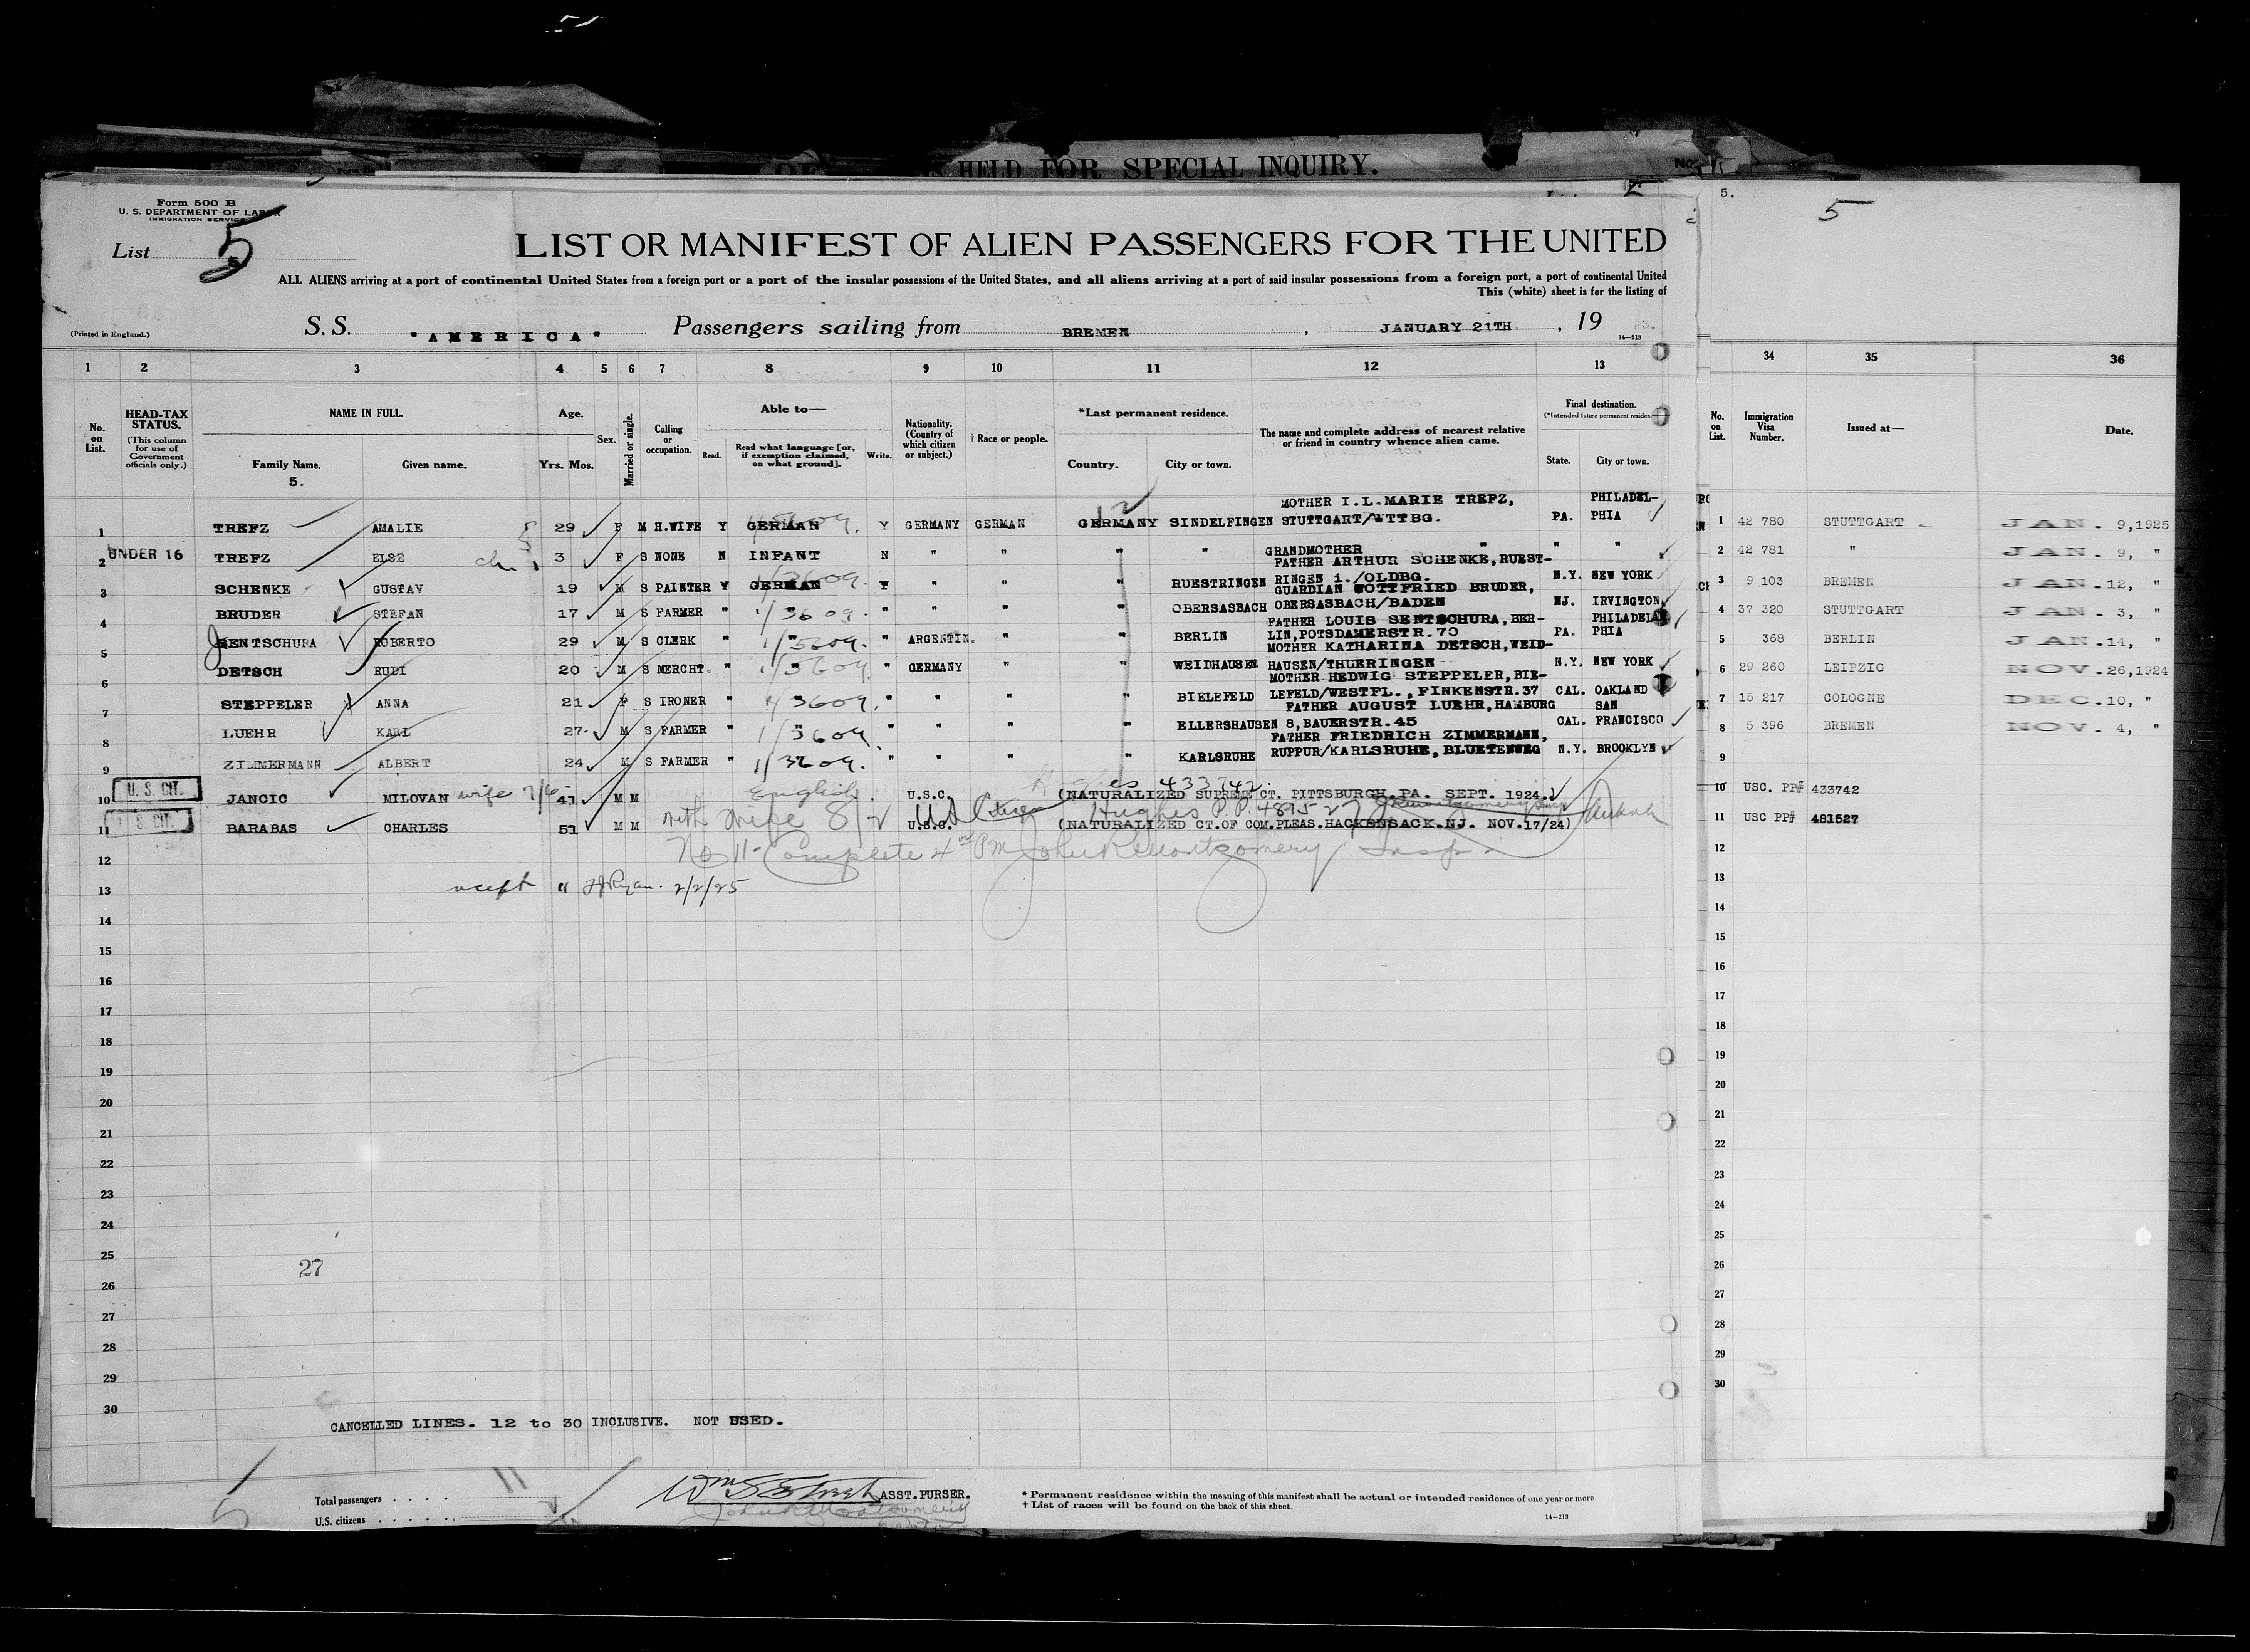 HELD FOR SPECIAL INQUIRY.
No.
Form 500 B
U. S. DEPARTMENT OF LABOR
IMMIGRATION SERVICE
List 5
5.
5
LIST OR MANIFEST OF ALIEN PASSENGERS FOR THE UNITED
ALL ALIENS arriving at a port of continental United States from a foreign port or a port of the insular possessions of the United States, and all aliens arriving at a port of said insular possessions from a foreign port, a port of continental United
This (white) sheet is for the listing of
(Printed in England.)
S. S. "AMERICA" Passengers sailing from BREMEN , JANUARY 21TH , 19
14—213
1 2 3 4 5 6 7 8 9 10 11 12 13 34 35 36
No. on List.
HEAD-TAX STATUS.
(This column for use of Government officials only.)
NAME IN FULL.
Family Name. Given name.
5.
Age.
Yrs. Mos.
Sex.
Married or single.
Calling or occupation.
Able to—
Read.
Read what language [or, if exemption claimed, on what ground].
Write.
Nationality. (Country of which citizen or subject.)
† Race or people.
*Last permanent residence.
Country. City or town.
The name and complete address of nearest relative or friend in country whence alien came.
Final destination.
(*Intended future permanent residen
State. City or town.
No. on List.
Immigration Visa Number.
Issued at—
Date.
MOTHER I.L.MARIE TREFZ, PHILADEL-
1 TREFZ AMALIE 29 F M H.WIFE Y GERMAN Y GERMANY GERMAN GERMANY SINDELFINGEN STUTTGART/WTTBG. PA. PHIA 1 42 780 STUTTGART JAN. 9,1925
GRANDMOTHER "
2 UNDER 16 TREFZ ELSE 3 F S NONE N INFANT N " " " " " " 2 42 781 " JAN. 9, "
FATHER ARTHUR SCHENKE,RUEST-
3 SCHENKE GUSTAV 19 M S PAINTER Y GERMAN Y " " " RUESTRINGEN RINGEN i./OLDBG. N.Y. NEW YORK 3 9 103 BREMEN JAN.12, "
GUARDIAN GOTTFRIED BRUDER,
4 BRUDER STEFAN 17 M S FARMER " 1/3609. " " " " OBERSASBACH OBERSASBACH/BADEN NJ. IRVINGTON 4 37 320 STUTTGART JAN. 3, "
FATHER LOUIS SENTSCHURA, BER- PHILADEL
5 JENTSCHURA ROBERTO 29 M S CLERK " " " ARGENTIN. " " BERLIN LIN,POTSDAMERSTR.70 PA. PHIA 5 368 BERLIN JAN.14, "
MOTHER KATHARINA DETSCH,WEID-
6 DETSCH RUDI 20 M S MERCHT. " " " GERMANY " " WEIDHAUSEN HAUSEN/THUERINGEN N.Y. NEW YORK 6 29 260 LEIPZIG NOV.26,1924
MOTHER HEDWIG STEPPELER,BIE-
7 STEPPELER ANNA 21 F S IRONER " " " " " BIELEFELD LEFELD/WESTFL.,FINKENSTR.37 CAL. OAKLAND 7 15 217 COLOGNE DEC.10, "
FATHER AUGUST LUEHR,HAMBURG SAN
8 LUEHR KARL 27 M S FARMER " " " " " " ELLERSHAUSEN 8,BAUERSTR.45 CAL. FRANCISCO 8 5 396 BREMEN NOV. 4, "
FATHER FRIEDRICH ZIMMERMANN,
9 ZIMMERMANN ALBERT 24 M S FARMER " 1/3609. " " " " KARLSRUHE RUPPUR/KARLSRUHE,BLUETENWEG N.Y. BROOKLYN 9
Hughes 433742.
10 U. S. CIT. JANCIC MILOVAN wife 7/6 41 M M English U.S.C. (NATURALIZED SUPREME CT. PITTSBURGH.PA. SEPT. 1924.) 10 USC. PP# 433742
with wife 8/2 US Citizen Hughes P.P.
11 S. CIT. BARABAS CHARLES 51 M M U.S.C. (NATURALIZED CT.OF COM.PLEAS.HACKENSACK.NJ. NOV.17/24) 11 USC PP# 481527
No 11- Complete John R Montgomery Insp.
12 12
13 " 2/2/25 13
14 14
15 15
16 16
17 17
18 18
19 19
20 20
21 21
22 22
23 23
24 24
25 25
27
26 26
27 27
28 28
29 29
30 30
CANCELLED LINES. 12 to 30 INCLUSIVE. NOT USED.
Total passengers 11
U.S. citizens
ASST.PURSER.
* Permanent residence within the meaning of this manifest shall be actual or intended residence of one year or more
† List of races will be found on the back of this sheet.
14—213